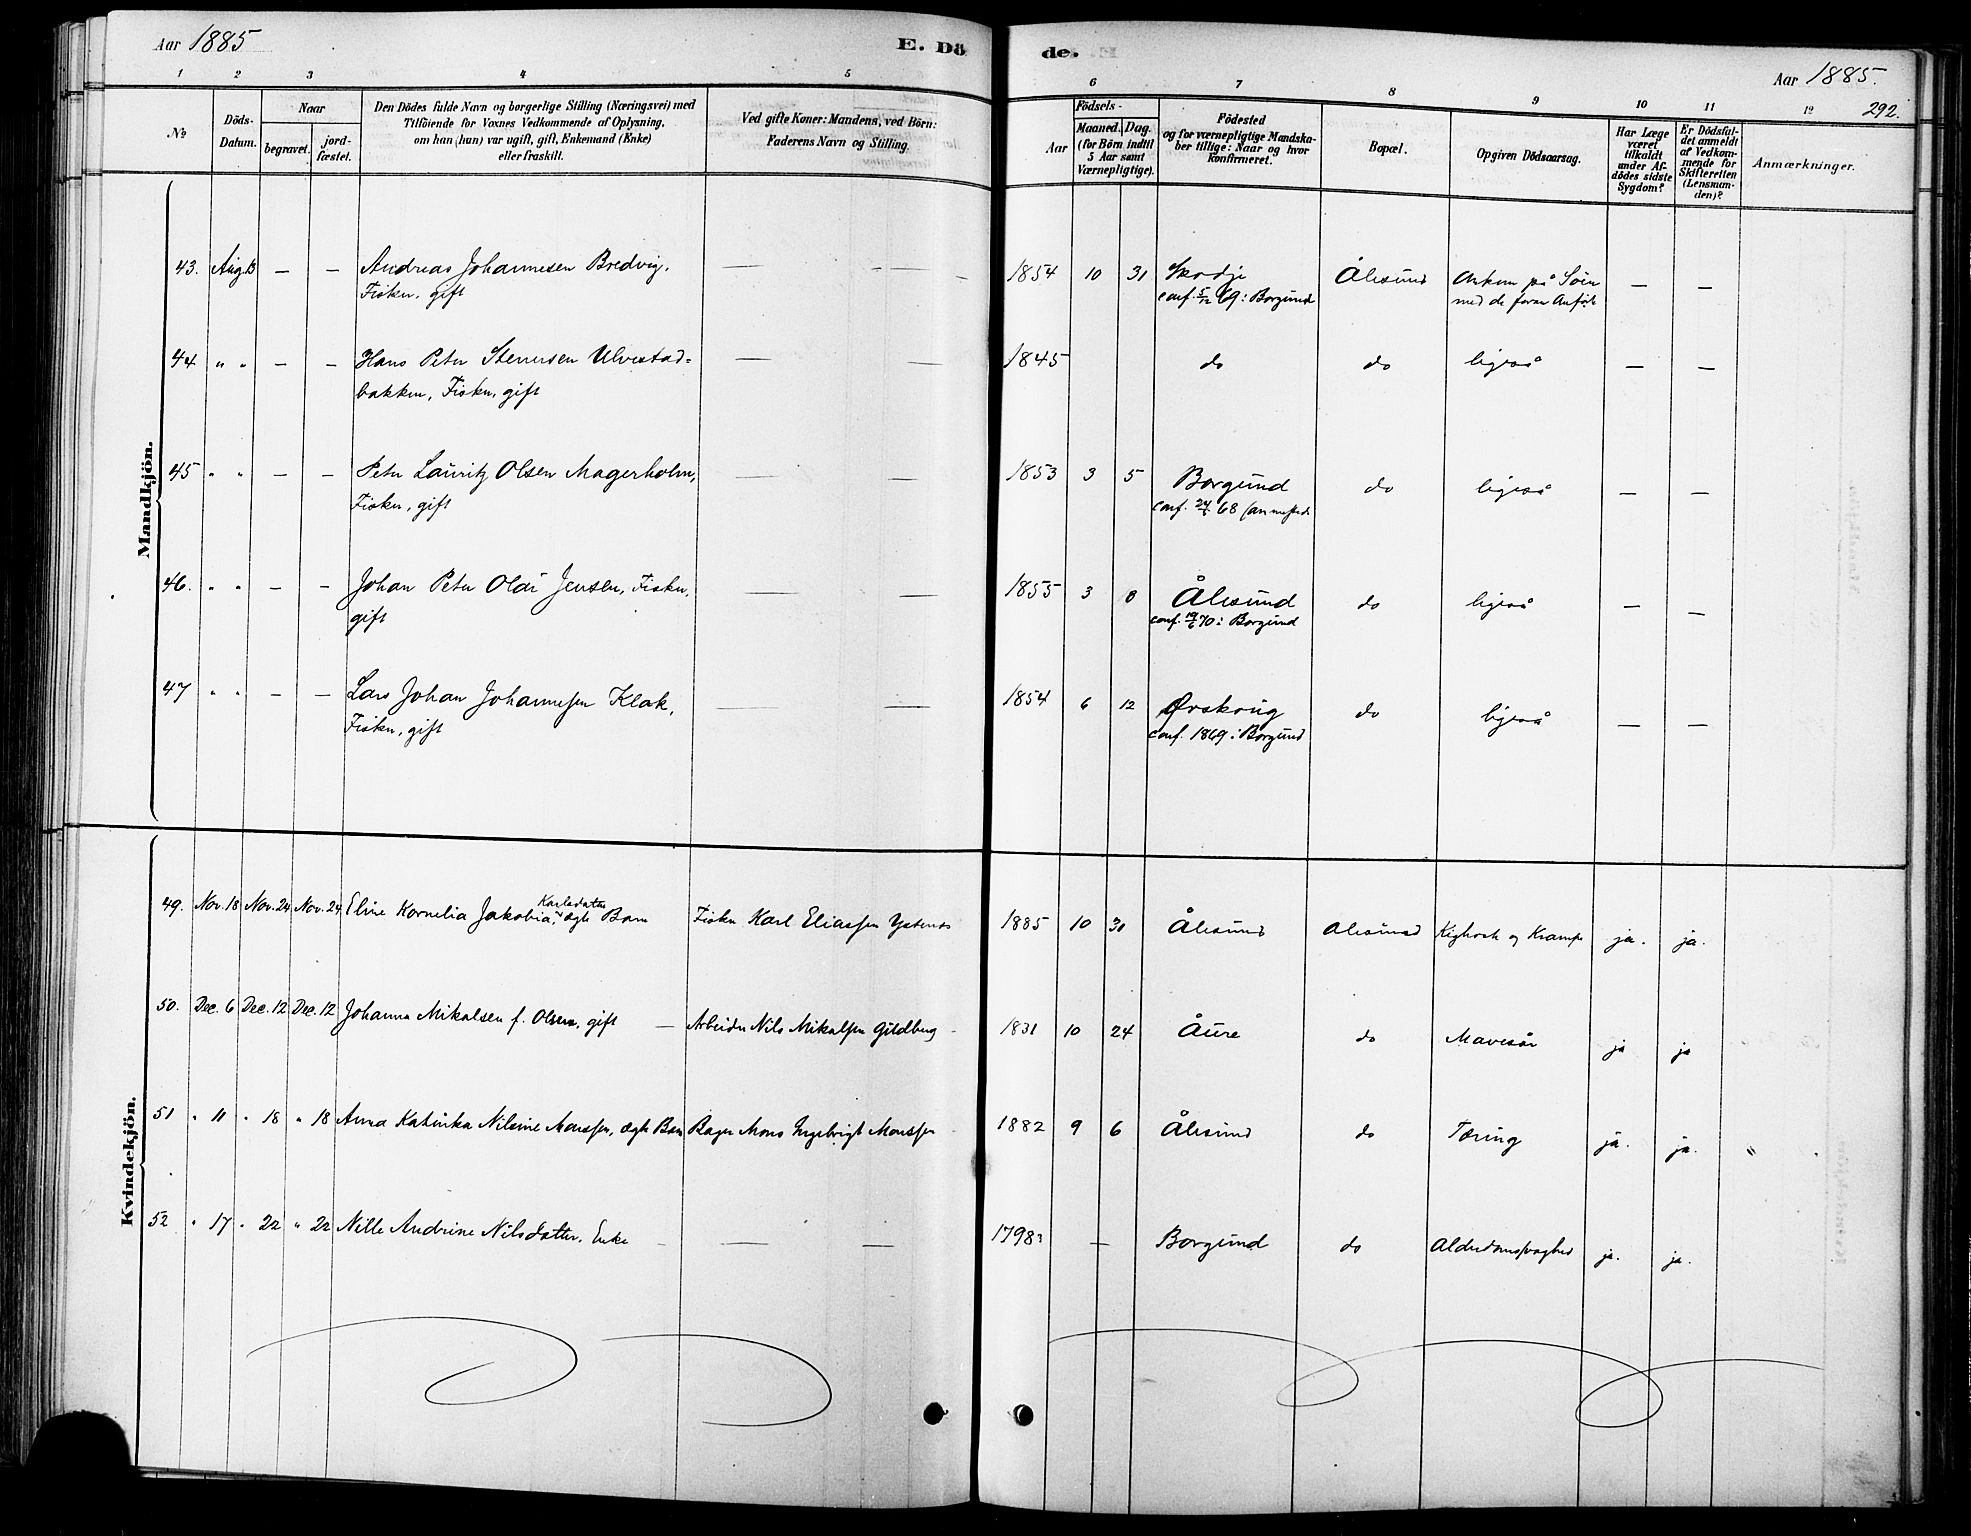 Aar 1885
E. Dö
de.
Aar 1885.
292.
1 2 3 4 5 6 7 8 9 10 11 12
No
Döds-
Datum.
Naar
begravet.
jord-
fæstet.
Den Dödes fulde Navn og borgerlige Stilling (Næringsvei) med
Tilföiende for Voxnes Vedkommende af Oplysning,
om han (hun) var ugift, gift, Enkemand (Enke)
eller fraskilt.
Ved gifte Koner: Mandens, ved Börn:
Faderens Navn og Stilling.
Födsels-
Aar
Maaned. Dag.
(for Börn indtil
5 Aar samt
Værnepligtige).
Födested
og for værnepligtige Mandska-
ber tillige: Naar og hvor
konfirmeret.
Bopæl.
Opgiven Dödsaarsag.
Har Læge
været
tilkaldt
under Af-
dödes sidste
Sygdom?
Er Dödsfal-
det anmeldt
af Vedkom-
mende for
Skifteretten
(Lensman-
den)?
Anmærkninger.
Mandkjön.
43. Aug. 13 — — Andreas Johannesen Bredvig, — — 1854 10 31 Skodje Ålesund Omkom på Søen — —
Fisker, gift conf. 5/12 69 i Borgund med de foran Anførte
44 " " — — Hans Peter Stenersen Ulvestad= — — 1845 do do ligeså — —
bakken, Fisker, gift
45 " " — — Peter Lauritz Olsen Magerholm, — — 1853 3 5 Borgund do ligeså — —
Fisker, gift conf. 68 sammesteds
46. " " — — Johan Peter Olai Jensen, Fisker, — — 1855 3 8 Ålesund do ligeså — —
gift conf. 19/6 70 i Borgund
47 " " — — Lars Johan Johannessen Klak, — — 1854 6 12 Ørskoug do ligeså — —
Fisker, gift conf. 1869 i Borgund
Kvindekjön.
Karlsdatter
49. Nov. 18 Nov. 24 Nov. 24 Eline Kornelia Jakobia, ægte Barn Fisker Karl Eliassen Ystenes 1885 10 31 Ålesund Ålesund Kighoste og Krampe ja. ja.
50. Dec. 6 Dec. 12 Dec. 12 Johanna Mikalsen f. Olsen, gift — Arbeider Nils Mikalsen Gildberg 1831 10 24 Aure do Mavesår ja ja
51 " 11 " 18 " 18 Anna Katinka Nilsine Monssen, ægte Barn Bager Mons Ingebrigt Monssen 1882 9 6 Ålesund do Tæring ja. ja. "
52 " 17 " 22 " 22 Nille Andrine Nilsdatter, Enke — — — 1798? — Borgund do Alderdomssvaghed ja. ja.